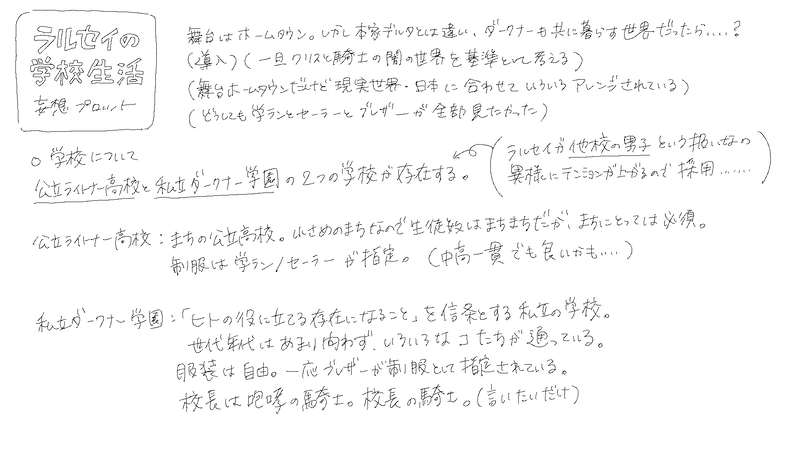 ラルセイの
学校生活
妄想プロット
舞台はホームタウン。しかし本家デルタとは違い、ダークナーも共に暮らす世界だったら....?
(導入)(一旦クリスと騎士の闇の世界を基準として考える)
(舞台ホームタウンだけど現実世界・日本に合わせていろいろアレンジされている)
(どうしても学ランとセーラーとブレザーが全部見たかった)
○学校について
公立ライトナー高校と私立ダークナー学園の2つの学校が存在する。
(ラルセイが他校の男子という扱いなの
異様にテンションが上がるので採用......)
公立ライトナー高校:まちの公立高校。小さめのまちなので生徒数はまちまちだが、まちにとっては必須。
制服は学ラン/セーラーが指定。(中高一貫でも良いかも....)
私立ダークナー学園:「ヒトの役に立てる存在になること」を信条とする私立の学校。
世代年代はあまり問わず、いろいろなコたちが通っている。
服装は自由。一応ブレザーが制服として指定されている。
校長は咆哮の騎士。校長の騎士。(言いたいだけ)